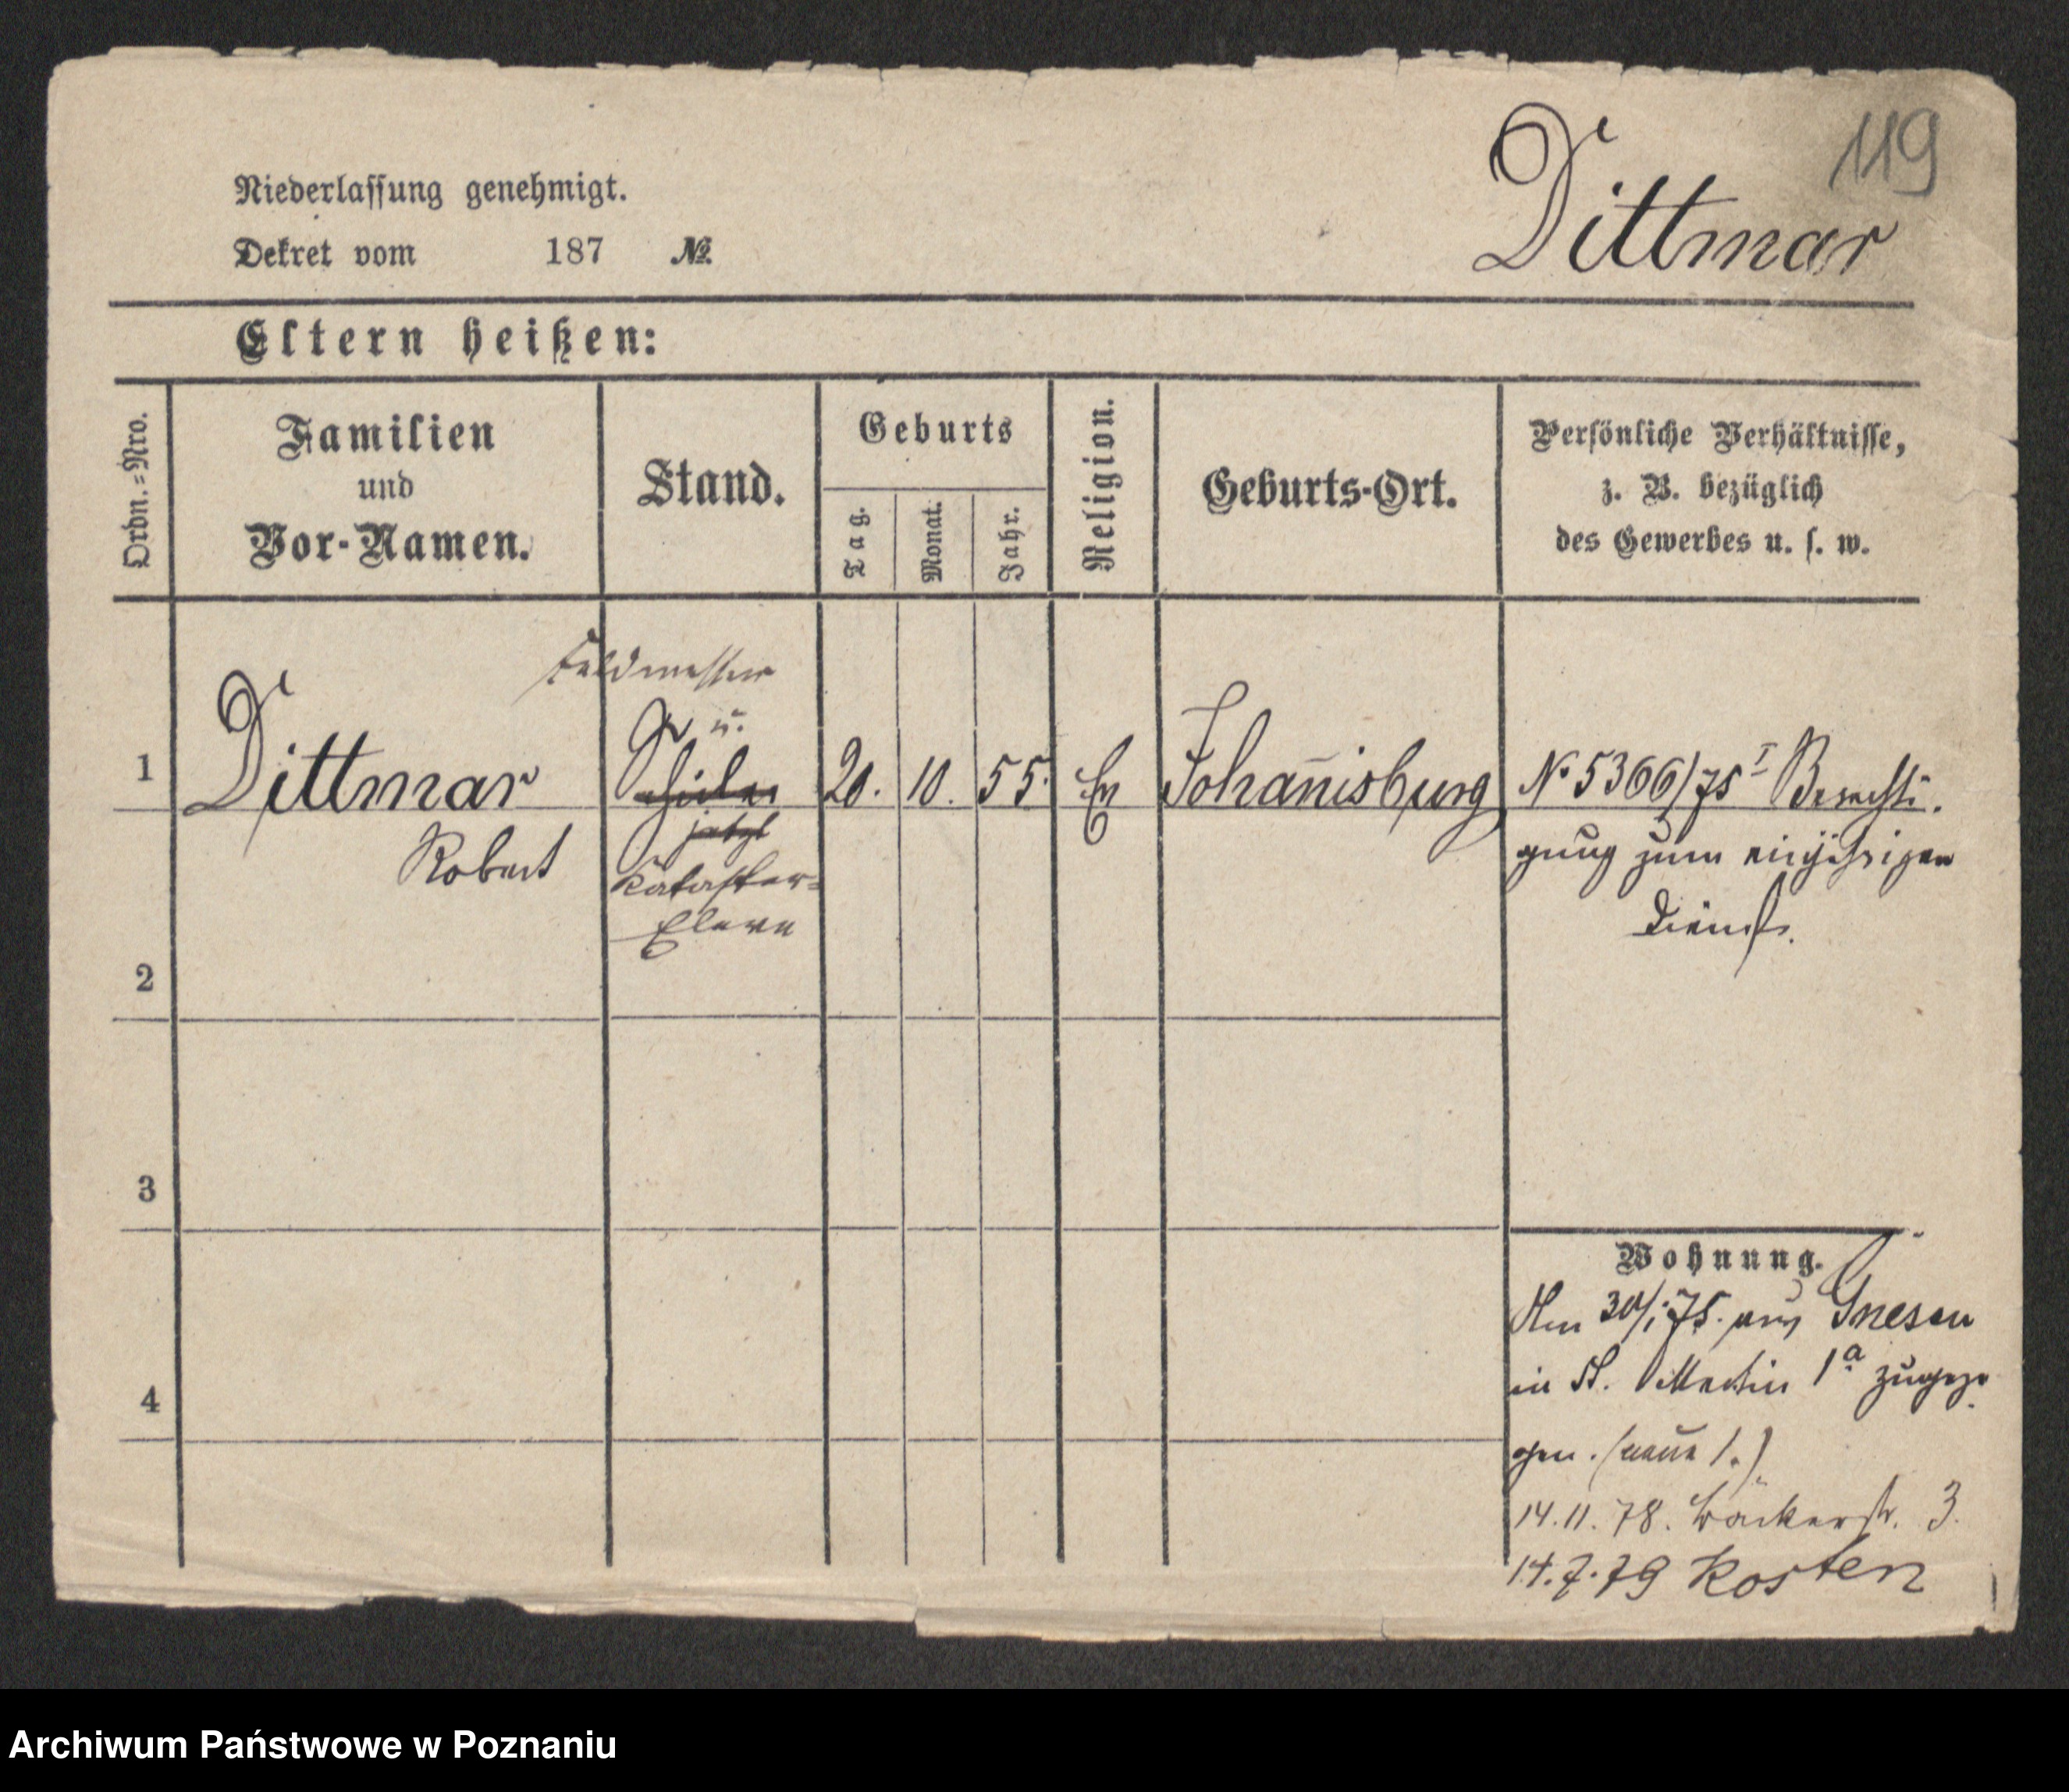 119
Dittmar
Niederlassung genehmigt.
Dekret vom 187 №
Eltern heißen:
Ordn.=Nro.
Familien
und
Vor-Namen.
Stand.
Geburts
Tag.
Monat.
Jahr.
Religion.
Geburts-Ort.
Persönliche Verhältnisse,
z. B. bezüglich
des Gewerbes u. s. w.
Feldmesser
u.
1 Dittmar Schüler 20. 10. 55. Ev Johan̄isburg № 5366/75 I Berechti.
Robert jetzt gung zum einjährigen
Kataster= Dienst.
Eleve
2
3
4
Wohnung.
Am 30/1 75. aus Gnesen
in St. Martin 1a zugezo
gen. (neue 1.)
14.11.78. Bäckerstr. 3.
14.7.79 Kosten
Archiwum Państwowe w Poznaniu